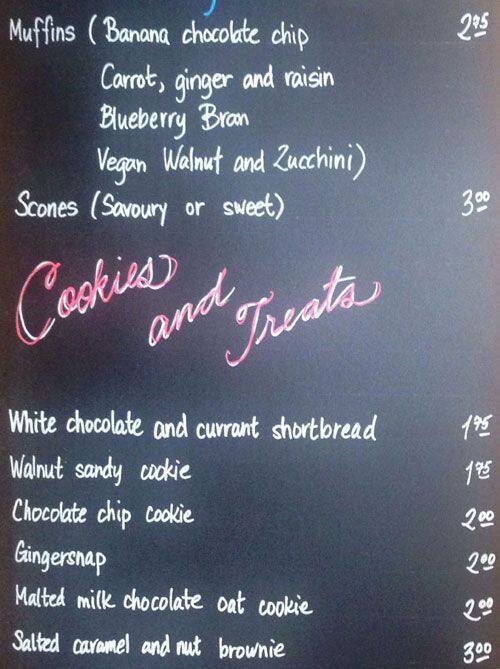 Muffins (Banana chocolate chip 2.75
Carrot, ginger and raisin
Blueberry Bran
Vegan Walnut and Zucchini)
Scones (Savoury or sweet) 3.00
Cookies
and
Treats
White chocolate and currant shortbread 1.75
Walnut sandy cookie 1.75
Chocolate chip cookie 2.00
Gingersnap 2.00
Malted milk chocolate oat cookie 2.00
Salted caramel and nut brownie 3.00